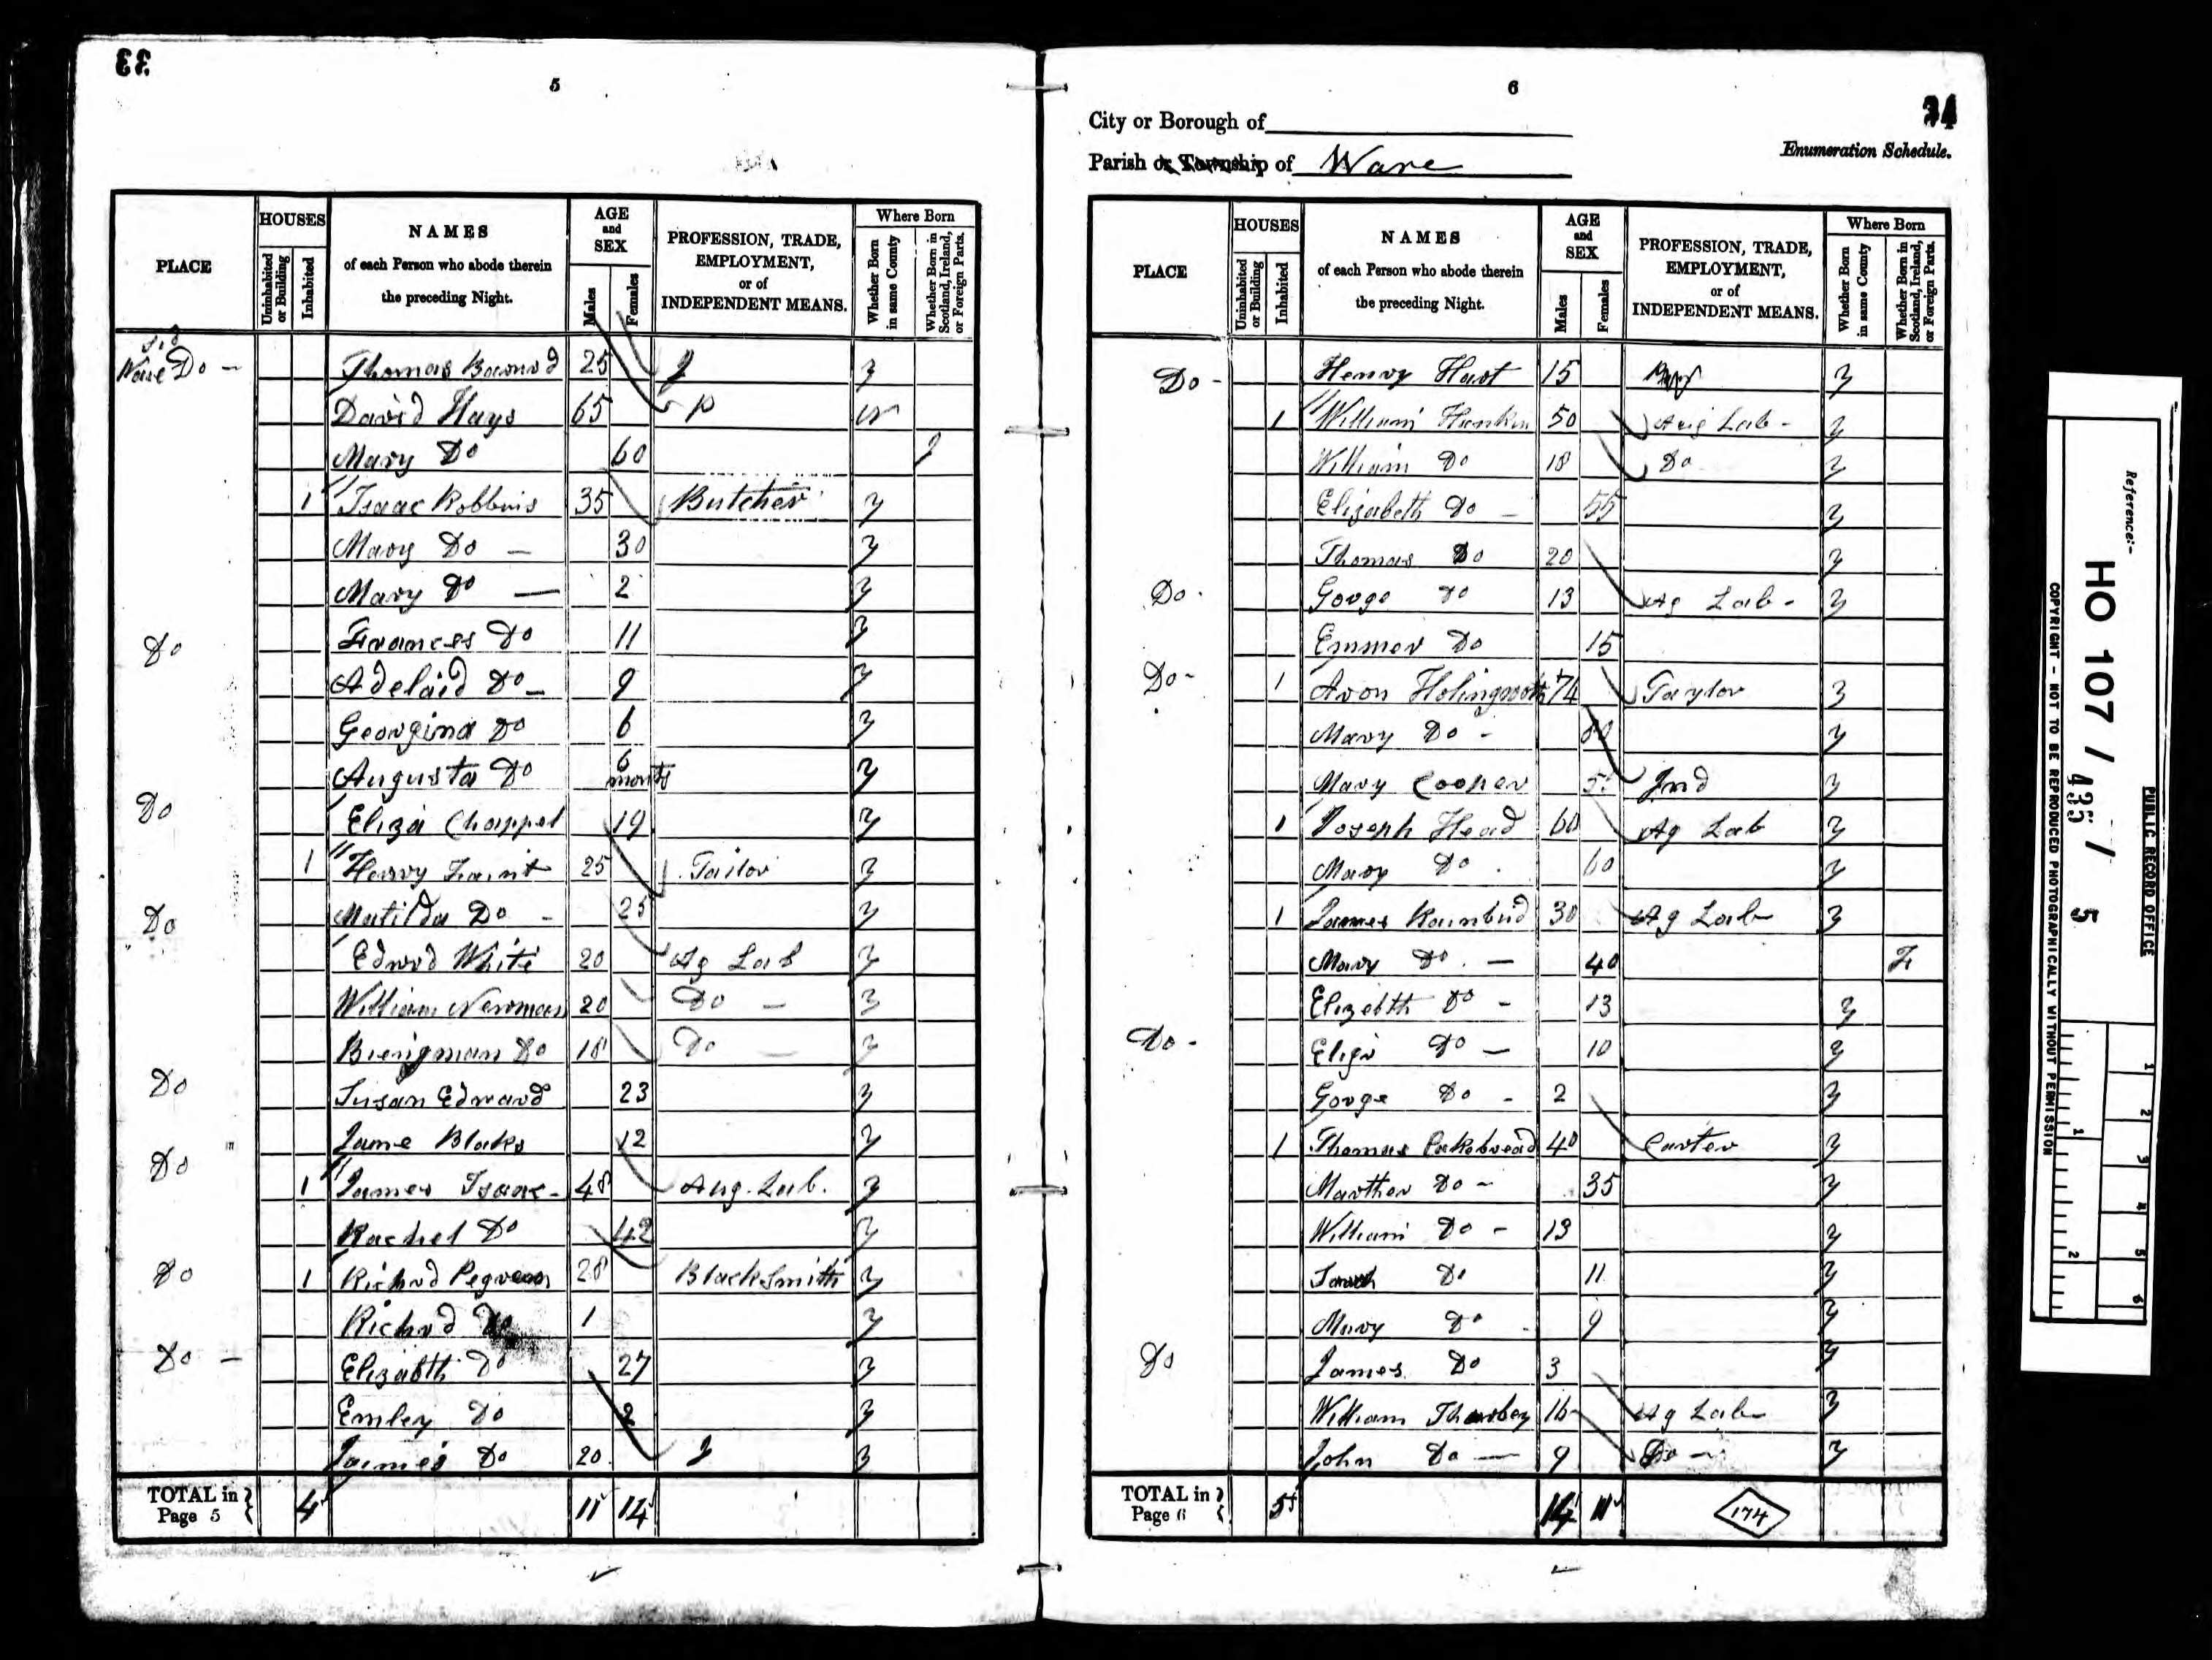 33
5
PLACE
HOUSES
Uninhabited or Building
Inhabited
NAMES
of each Person who abode therein
the preceding Night.
AGE
and
SEX
Males
Females
PROFESSION, TRADE,
EMPLOYMENT,
or of
INDEPENDENT MEANS.
Where Born
Whether Born in same County
Whether Born in Scotland, Ireland, or Foreign Parts.
Ware Do - Thomas 25 J y
David Hays 65 P
Mary Do 60 J
1 Isaac Robbins 35 Butcher y
Mary Do - 30 y
Mary Do - 2 y
Do Frances Do 11 y
Adelaid Do - 9 y
Georgina Do 6 y
Augusta Do 6 y
Do Eliza Chappel 19 y
1 Henry 25 Tailor y
Do Matilda Do - 25 y
Edwrd White 20 Ag Lab y
William Newman 20 Do - y
Do 18 Do - y
Do Susan Edward 23 y
Jame Blaks 12 y
Do 1 James Isaac - 48 Aug. Lab. y
Rachel Do 42 y
Do 1 Richrd 28 BlackSmith y
Richrd Do 1 y
Do - Elizabth Do 27 y
Emley Do 2 y
James Do 20 J y
TOTAL in
Page 5 4 11 14
6
34
City or Borough of
Parish or Township of Ware
Enumeration Schedule.
PLACE
HOUSES
Uninhabited or Building
Inhabited
NAMES
of each Person who abode therein
the preceding Night.
AGE
and
SEX
Males
Females
PROFESSION, TRADE,
EMPLOYMENT,
or of
INDEPENDENT MEANS.
Where Born
Whether Born in same County
Whether Born in Scotland, Ireland, or Foreign Parts.
Do - Henry Hart 15 y
1 William 50 Aug Lab - y
William Do 18 Do y
Elizabeth Do - 55 y
Thomas Do 20 y
Do - Gorge Do 13 Ag Lab - y
Emmer Do 15 y
Do - 1 Aron Holingworth 74 Taylor y
Mary Do - y
Mary Cooper Ind y
1 Joseph Head 60 Ag Lab y
Mary Do 60 y
1 James 30 Ag Lab y
Mary Do - 40 F
Elizebth Do - 13 y
Do - Eliza Do - 10 y
Gorge Do - 2 y
1 Thomas Cakebread 40 Carter y
Marther Do - 35 y
William Do - 13 y
Do 11 y
Mary Do 9 y
Do James Do 3 y
William 16 Ag Lab y
John Do - 9 Do - y
TOTAL in
Page 6 5 14 11 174
PUBLIC RECORD OFFICE
Reference:-
HO 107 / 435 / 5
COPYRIGHT - NOT TO BE REPRODUCED PHOTOGRAPHICALLY WITHOUT PERMISSION
1 2 3 4 5 6
1 2